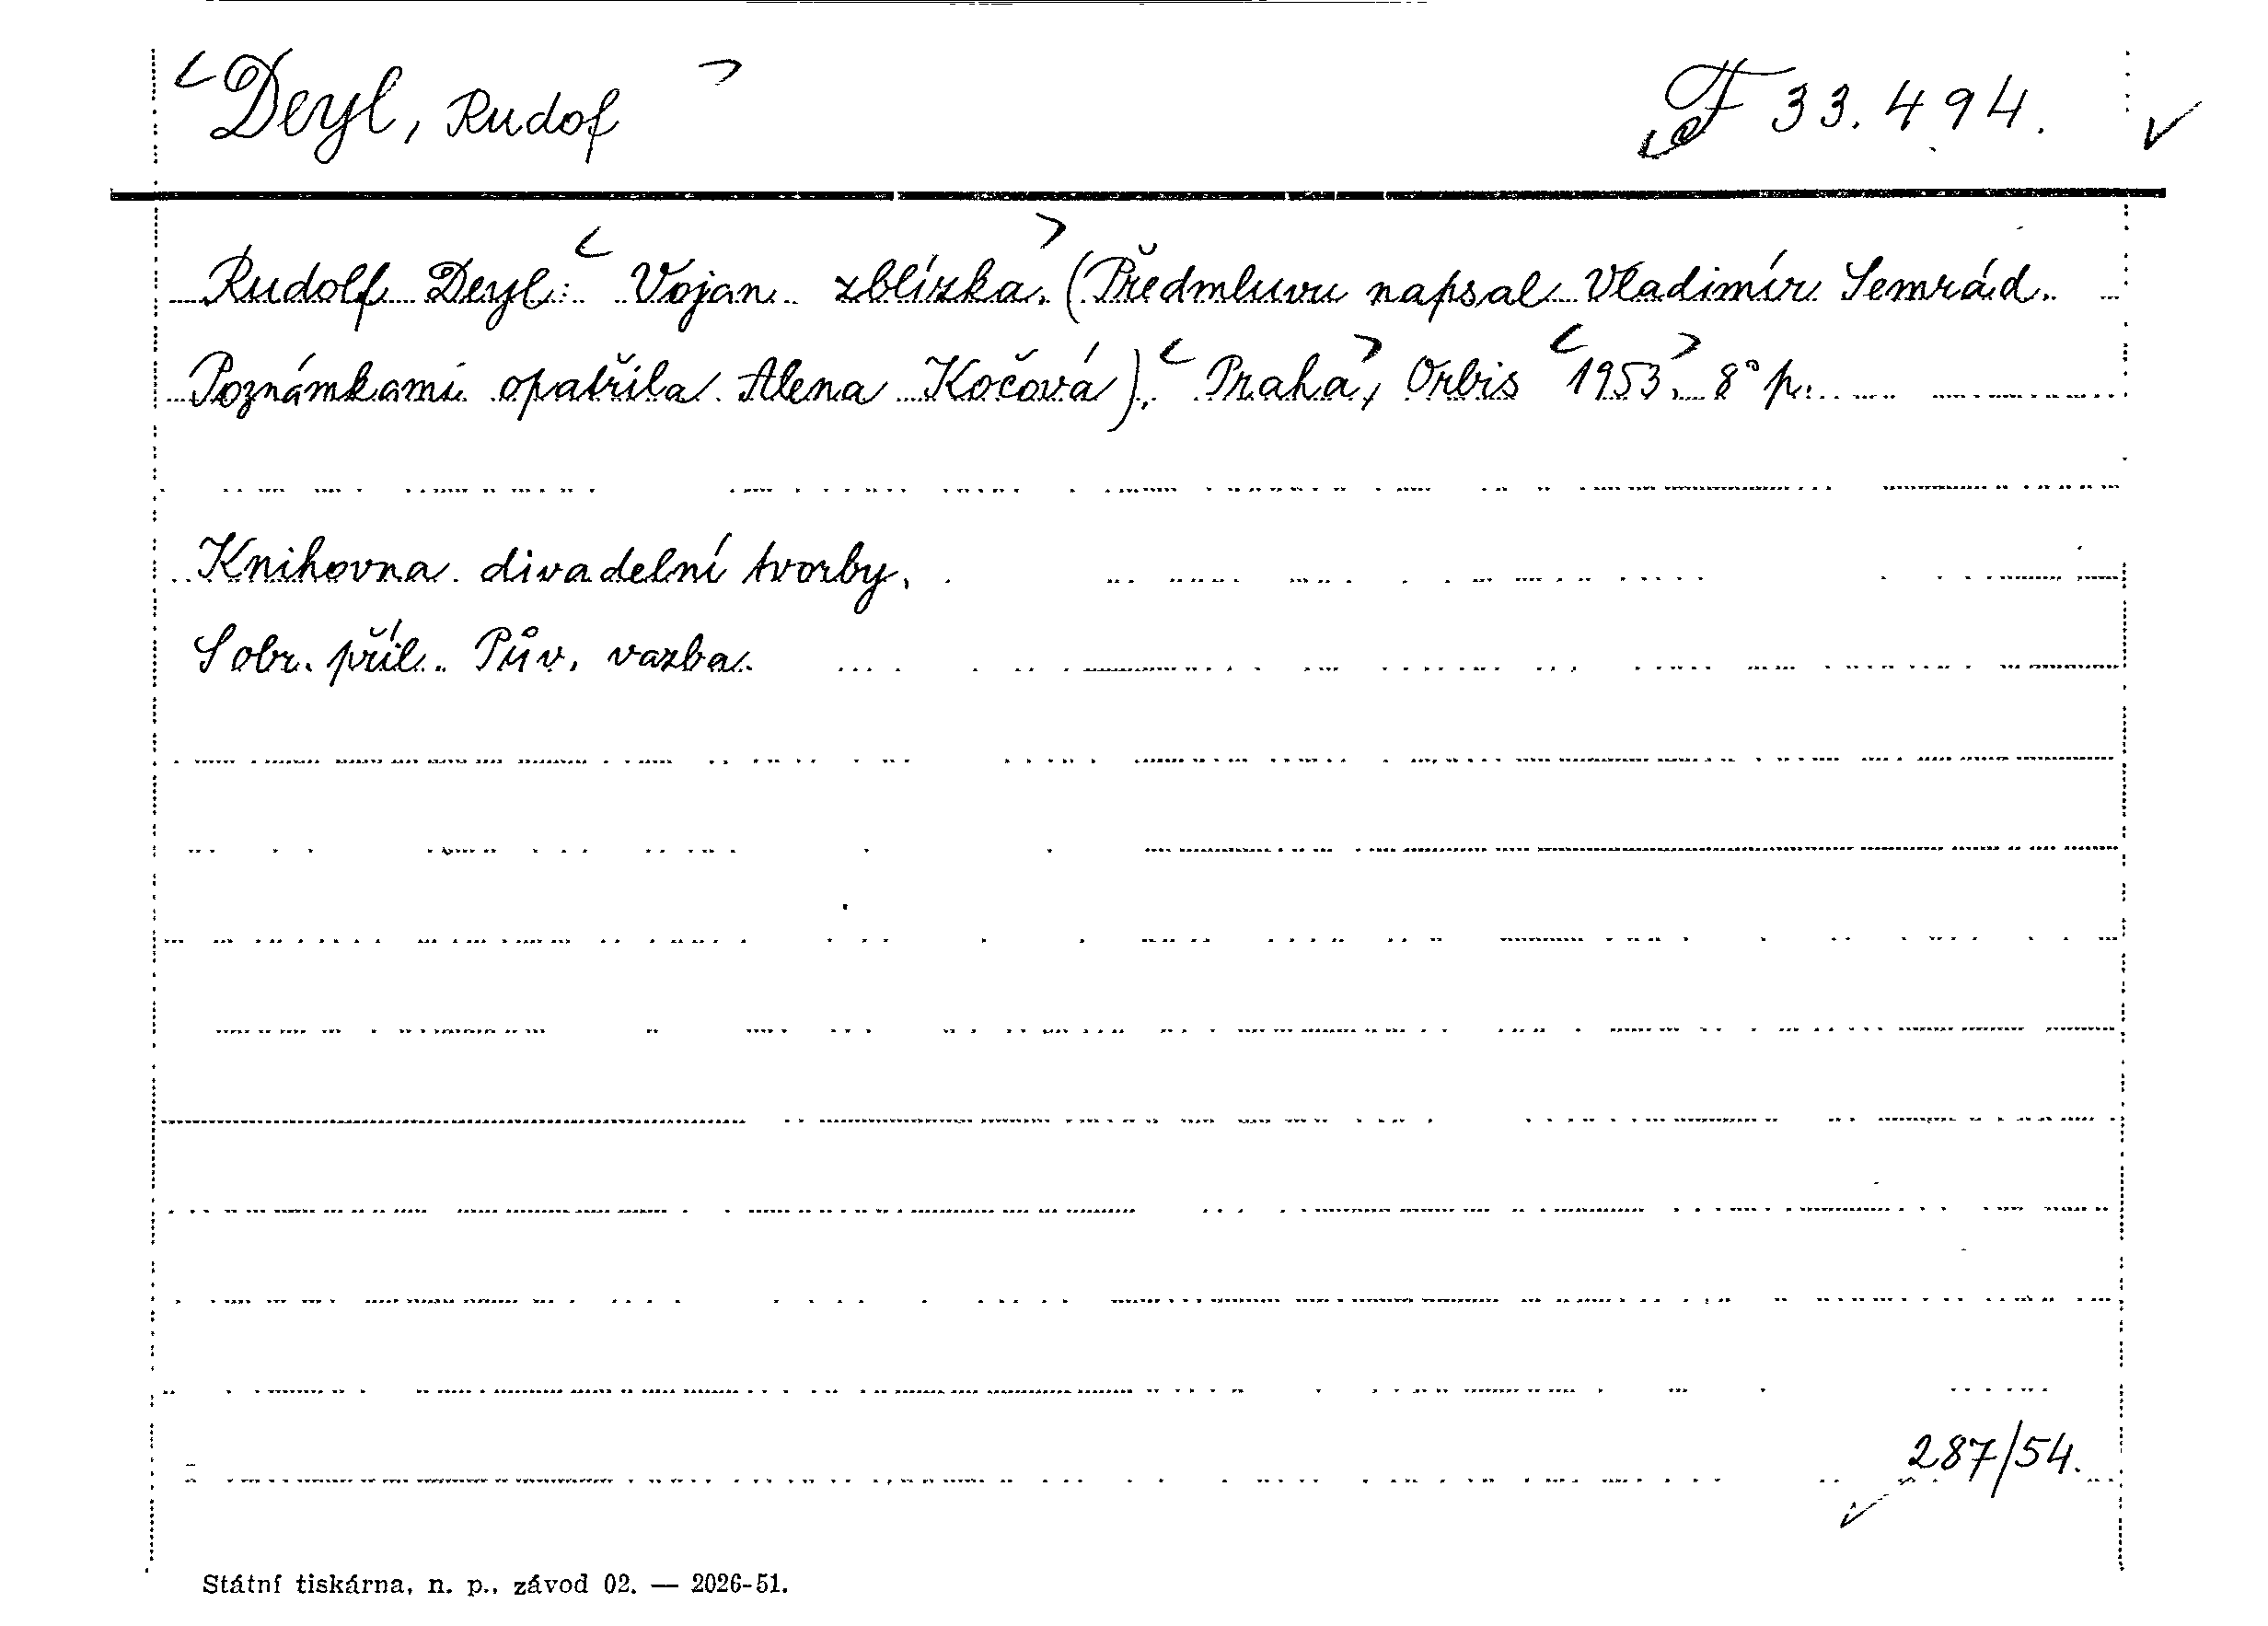 <Deyl, Rudof> F 33.494. ✓
Rudolf Deyl: <Vojan zblízka.> (Předmluvu napsal Vladimír Semrád.
Poznámkami opatřila Alena Kočová). <Praha>, Orbis <1953>. 8° p.
Knihovna divadelní tvorby.
S obr. příl. Pův. vazba.
287/54.
✓
Státní tiskárna, n. p., závod 02. — 2026-51.